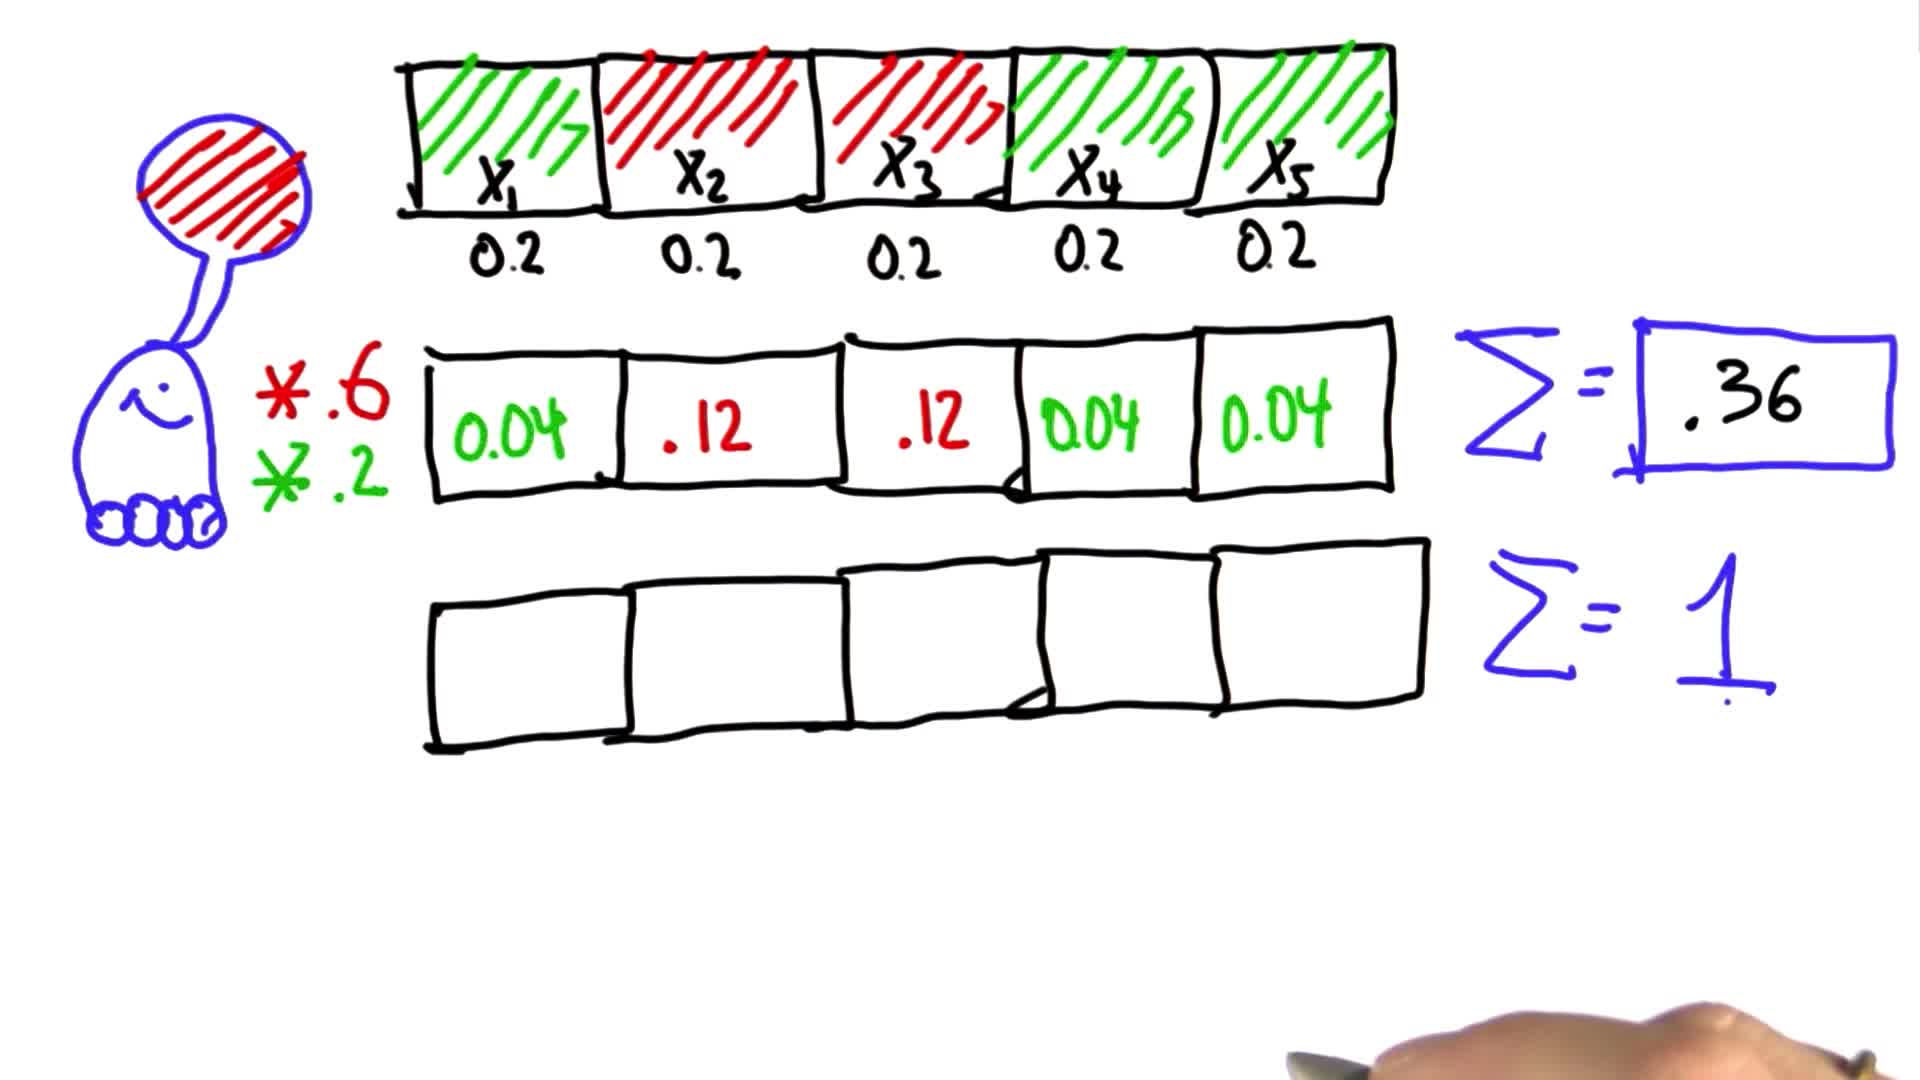 X1 X2 X3 X4 X5
0.2 0.2 0.2 0.2 0.2
*.6
*.2
0.04 .12 .12 0.04 0.04
Σ = .36
Σ = 1